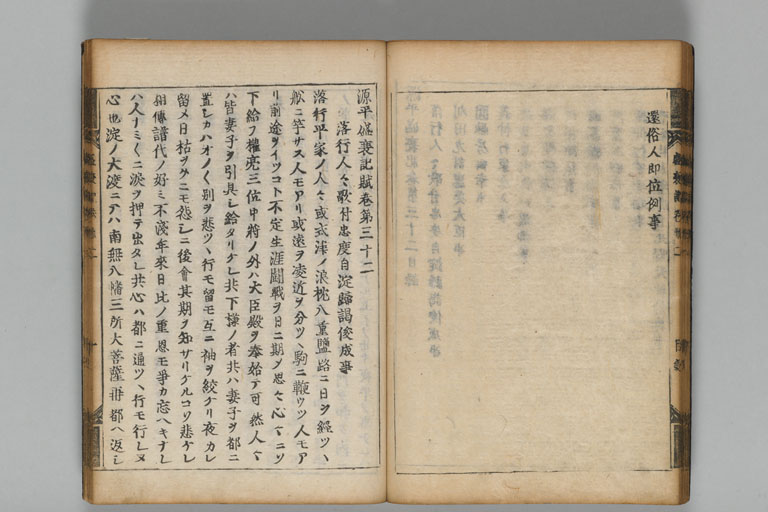 還俗人即位例事
源平盛衰記賦巻第三十二
落行人々歌付忠度自淀歸謁俊成事
落行平家ノ人々或式津ノ浪枕八重鹽路ニ日ヲ經ツヽ
舩ニ竿サス人モアリ或遠ヲ凌近ヲ分ツヽ駒ニ鞭ウツ人モア
リ前途ヲイツコト不定生涯闘戦ヲ日ニ期メ思々心々ニソ
下給フ權亮三位中將ノ外ハ大臣殿ヲ奉始テ可然人々
ハ皆妻子ヲ引具シ給タリケレ共下様ノ者共ハ妻子ヲ都ニ
置シカハオノ〱別ヲ悲ツヽ行モ留モ互ニ袖ヲ絞ケリ夜カレ
留メ日枯ヲタニモ怨シニ後會其期ヲ知サリケルコソ悲ケレ
相傳譜代ノ好ミ不淺年來日比ノ重恩モ爭カ忘ハキナレ
ハ人ナミ〱ニ涙ヲ押テ出タレ共心ハ都ニ通ツヽ行モ行レヌ
心也淀ノ大渡ニテハ南無八幡三所大菩薩再都ハ返シ